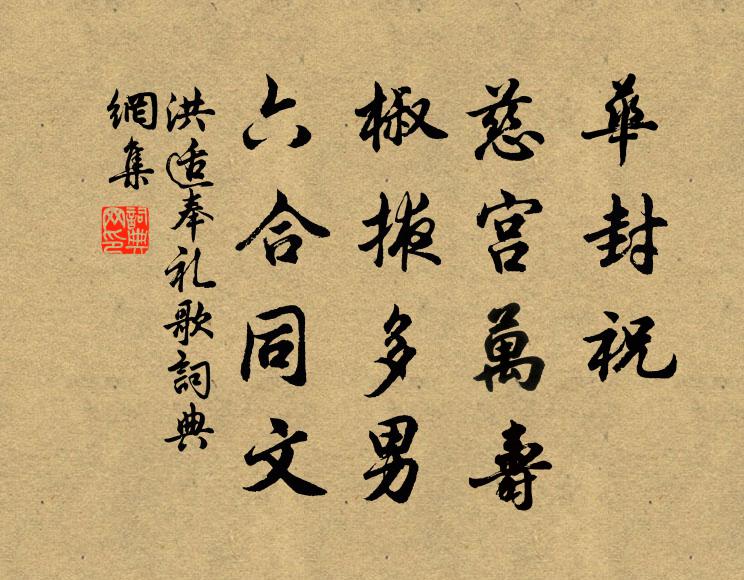 華封祝
慈宮萬壽
椒掖多男
六合同文
洪适奉礼歌詞典
網集
詞典
网印